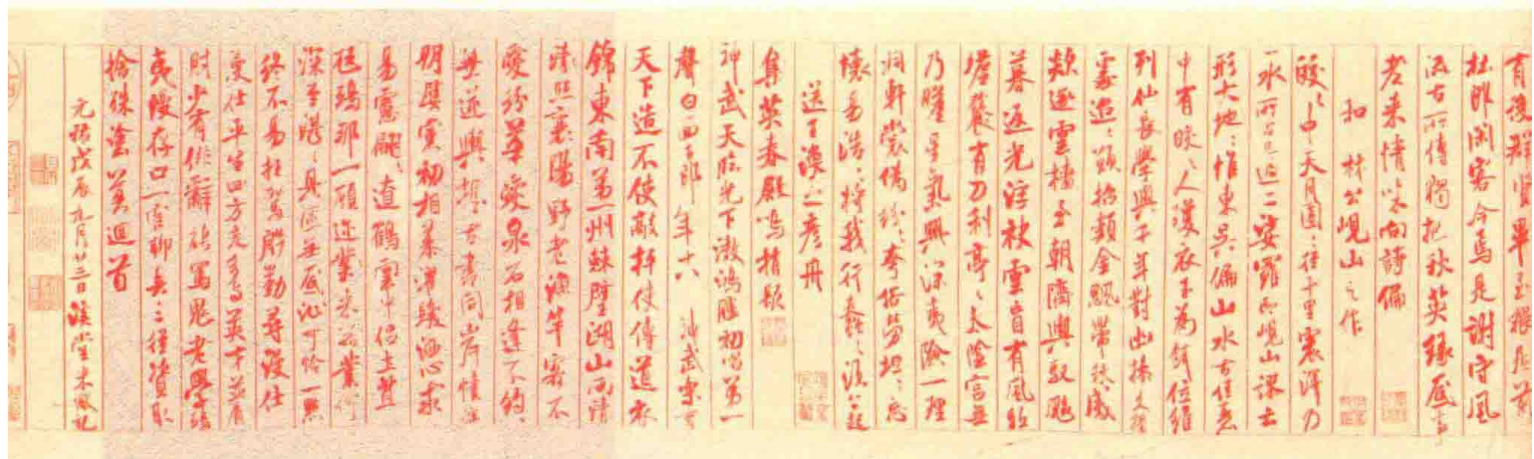 有後群贤畢至猥居前
杜郎閑客今焉是謝守風
流古所傳獨把秋英緣底事
老来情味向詩偏
和林公峴山之作
皎々中天月團々徑千里震澤乃
一水所占已過二娑羅即峴山謬云
形大地々惟東吳偏山水古佳麗
中有皎々人瓊衣玉為餌位維
列仙長學與千年對幽操久獨
處迢々願招類金飈帶秋威
欻逐雲檣至朝隮輿馭飈
暮返光浮袂雲盲有風驅
蟾餮有刀利亭々太陰宮無
乃瞻星氣興深夷險一理
洞軒裳偽紛々夸俗勞坦々忘
懷易浩々將我行蠢々須公起
送王渙之彥舟
集英春殿鳴捎歇
神武天臨光下澈鴻臚初唱第一
聲白面玉郎年十八神武樂育
天下造不使敲抨使傳道衣
錦東南第一州棘璧湖山兩清
照襄陽野老漁竿客不
愛紛華愛泉石相逢不約約
無逆輿握古書同岸幘淫
朋嬖黨初相慕濯髮灑心求
易慮翩々遼鶴雲中侶土苴
尪鴟那一顧迩来器業何
深至湛々具區無底沚可怜一點
終不易枉駕殷勤尋漫仕
漫仕平生四方走多與英才並肩
肘少有俳辭能罵鬼老學鴟
夷漫存口一官聊具三徑資取
捨殊塗莫迴首
元祐戊辰九月廿三日溪堂米黻記